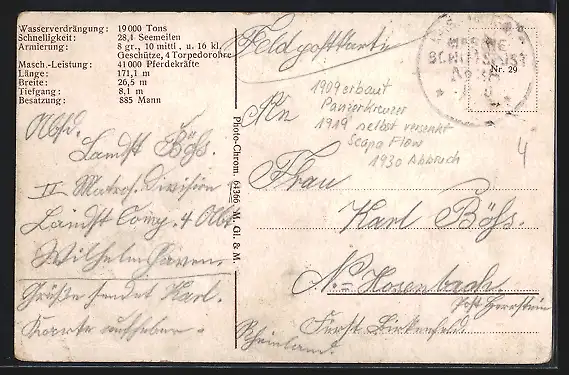 Wasserverdrängung: 19000 Tons
Schnelligkeit: 28,1 Seemeilen
Armierung: 8 gr., 10 mittl., u. 16 kl.
Geschütze, 4 Torpedorohre
Masch.-Leistung: 41000 Pferdekräfte
Länge: 171,1 m
Breite: 26,5 m
Tiefgang: 8,1 m
Besatzung: 885 Mann
Abs.
Landst Böhs.
II Matros. Division
Landst Comp. 4 Abt.
Wilhelmshaven.
Grüße sendet Karl.
Karte aufheben.
Photo-Chrom. 64366 M. Gl. & M.
Feldpostkarte
MARINE
Nr. 29
1909 erbaut
Panzerkreuzer
1919 selbst versenkt
Scapa Flow
1930 Abbruch
4
An
Frau
Karl Böhs.
N.= Hosenbach.
Post Herrstein
Fürst. Birkenfeld.
Rheinland.